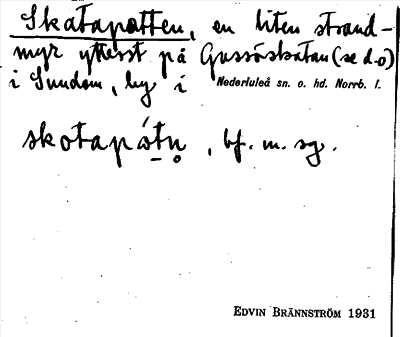 Skatapotten, en liten strand-
myr ytterst på Gussöskatan (se d.o)
i Sundom, by i Nederluleå sn. o. hd. Norrb. l.
skotapátn̥, bf. m. sg.
EDVIN BRÄNNSTRÖM 1931